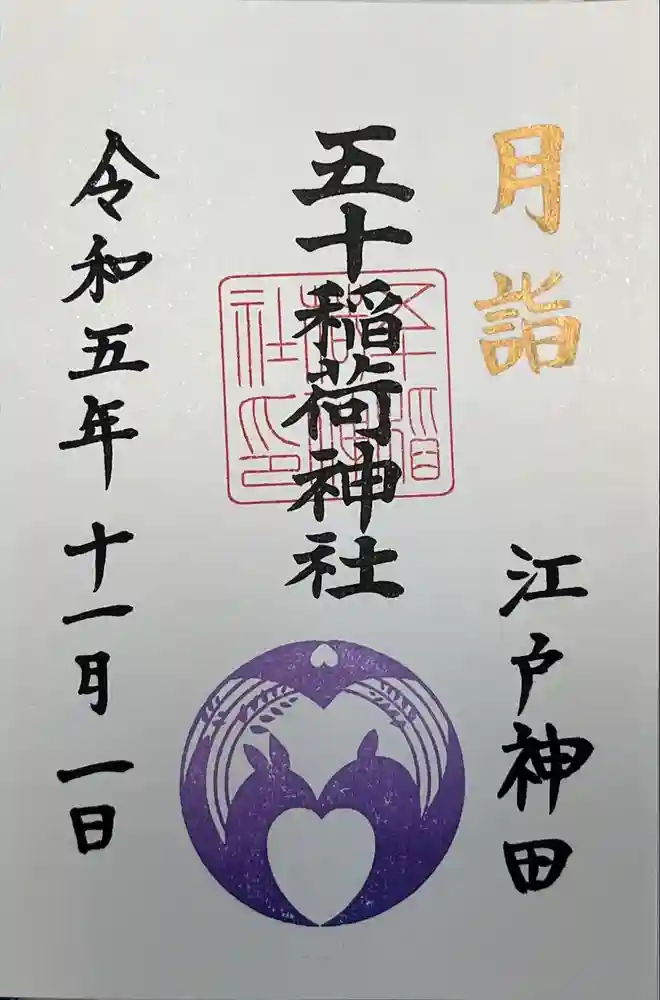 月詣
江戸神田
五十稲荷神社
令和五年十一月一日